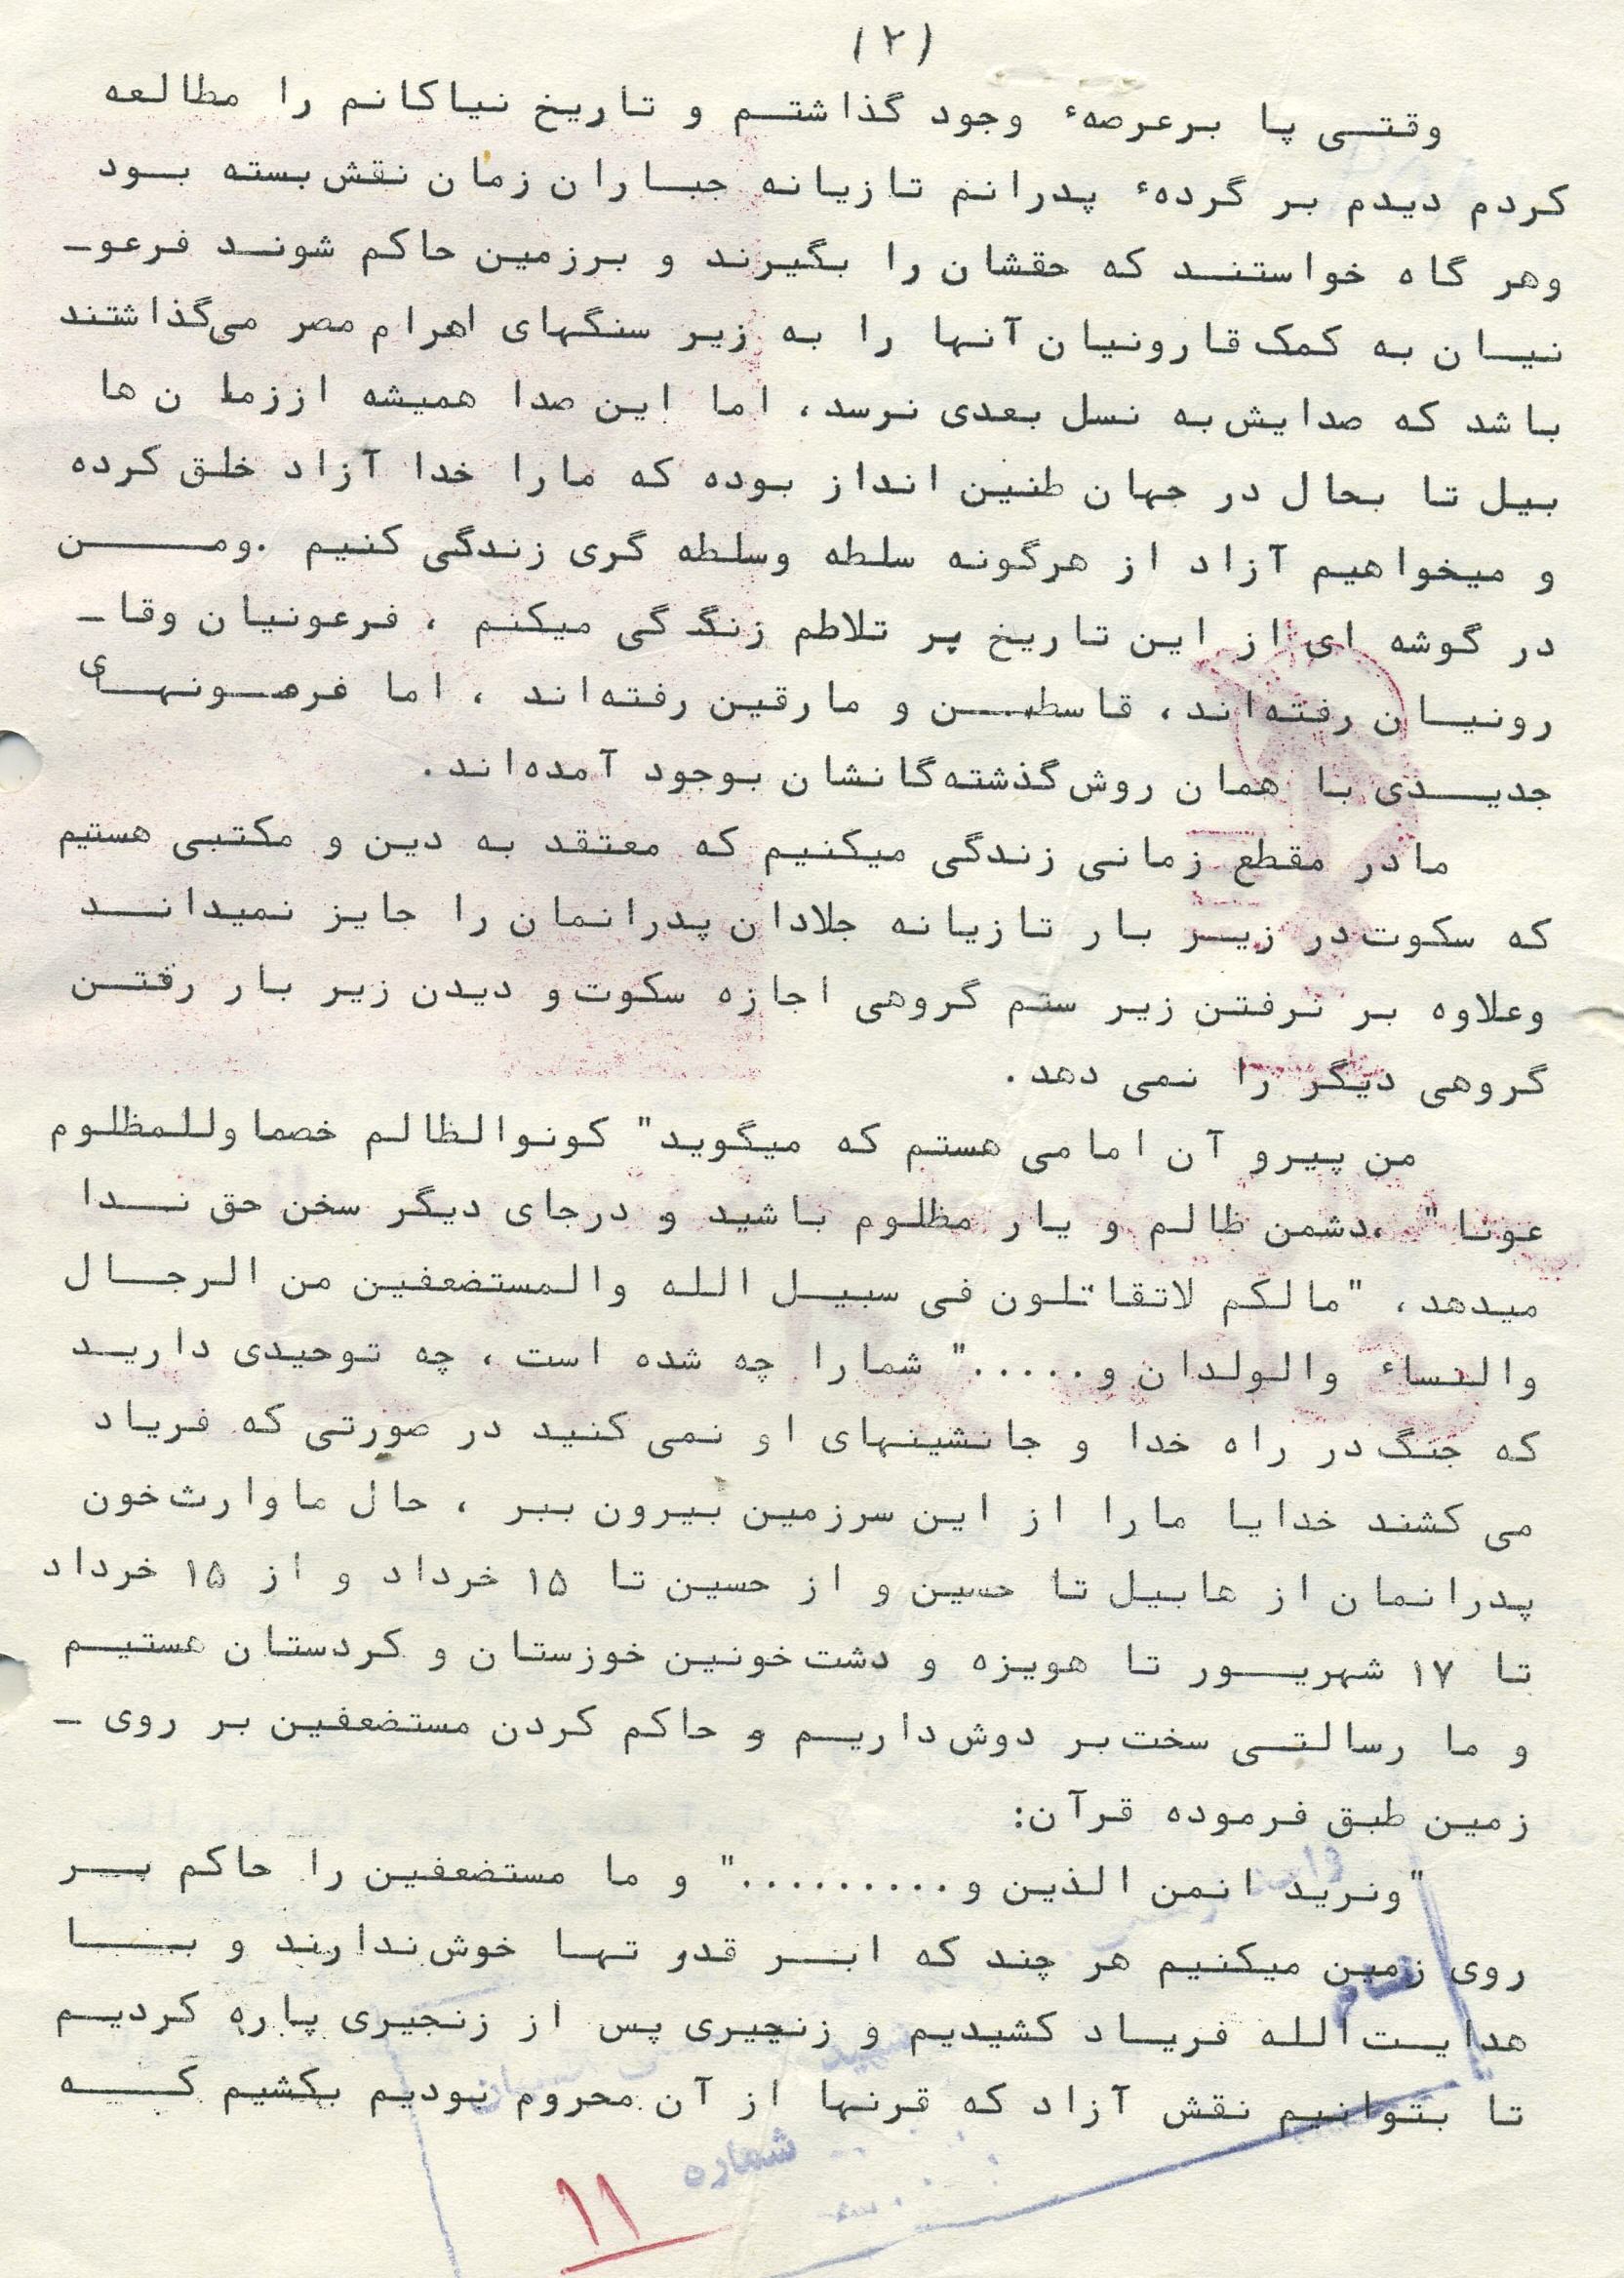 (۲)
وقتی پا برعرصهٔ وجود گذاشتم و تاریخ نیاکانم را مطالعه
کردم دیدم بر گردهٔ پدرانم تازیانه جباران زمان نقش بسته بود
وهر گاه خواستند که حقشان را بگیرند و برزمین حاکم شوند فرعو-
نیان به کمک قارونیان آنها را به زیر سنگهای اهرام مصر می‌گذاشتند
باشد که صدایش به نسل بعدی نرسد، اما این صدا همیشه اززما ن ها
بیل تا بحال در جهان طنین انداز بوده که مارا خدا آزاد خلق کرده
و میخواهیم آزاد از هرگونه سلطه وسلطه گری زندگی کنیم .ومن
در گوشه ای از این تاریخ پر تلاطم زنگ گی میکنم ، فرعونیان وقا-
رونیان رفته‌اند، قاسطین و مارقین رفته‌اند ، اما فرعونهای
جدیدی با همان روش گذشته‌گانشان بوجود آمده‌اند.
مادر مقطع زمانی زندگی میکنیم که معتقد به دین و مکتبی هستیم
که سکوت در زیر بار تازیانه جلادان پدرانمان را جایز نمیداند
وعلاوه بر نرفتن زیر ستم گروهی اجازه سکوت و دیدن زیر بار رفتن
گروهی دیگر را نمی دهد.
من پیرو آن امامی هستم که میگوید" کونوالظالم خصما وللمظلوم
عونا" ،دشمن ظالم و یار مظلوم باشید و درجای دیگر سخن حق ندا
میدهد، "مالکم لاتقاتلون فی سبیل الله والمستضعفین من الرجال
والنساء والولدان و....." شمارا چه شده است، چه توحیدی دارید
که جنگ در راه خدا و جانشینهای او نمی کنید در صورتی که فریاد
می کشند خدایا مارا از این سرزمین بیرون ببر ، حال ماوارث خون
پدرانمان از هابیل تا حسین و از حسین تا ۱۵ خرداد و از ۱۵ خرداد
تا ۱۷ شهریور تا هویزه و دشت خونین خوزستان و کردستان هستیم
و ما رسالتی سخت بر دوش داریم و حاکم کردن مستضعفین بر روی -
زمین طبق فرموده قرآن:
"ونرید انمن الذین و........." و ما مستضعفین را حاکم بر
روی زمین میکنیم هر چند که ابر قدر تها خوش ندارند و بنا
هدایت‌الله فریاد کشیدیم و زنجیری پس از زنجیری پاره کردیم
تا بتوانیم نقش آزاد که قرنها از آن محروم بودیم بکشیم که
شماره
۱۱